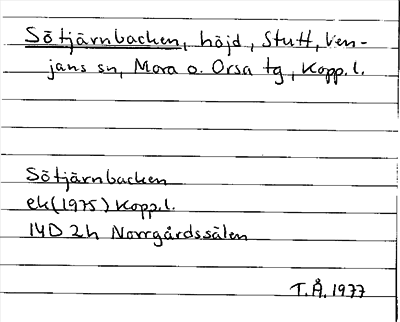 Sötjärnbacken, höjd, Stutt, Ven-
jans sn, Mora o. Orsa tg, Kopp.l.
Sötjärnbacken
ek(1975) Kopp.l.
14D 2h Norrgårdssälen
T.Å. 1977